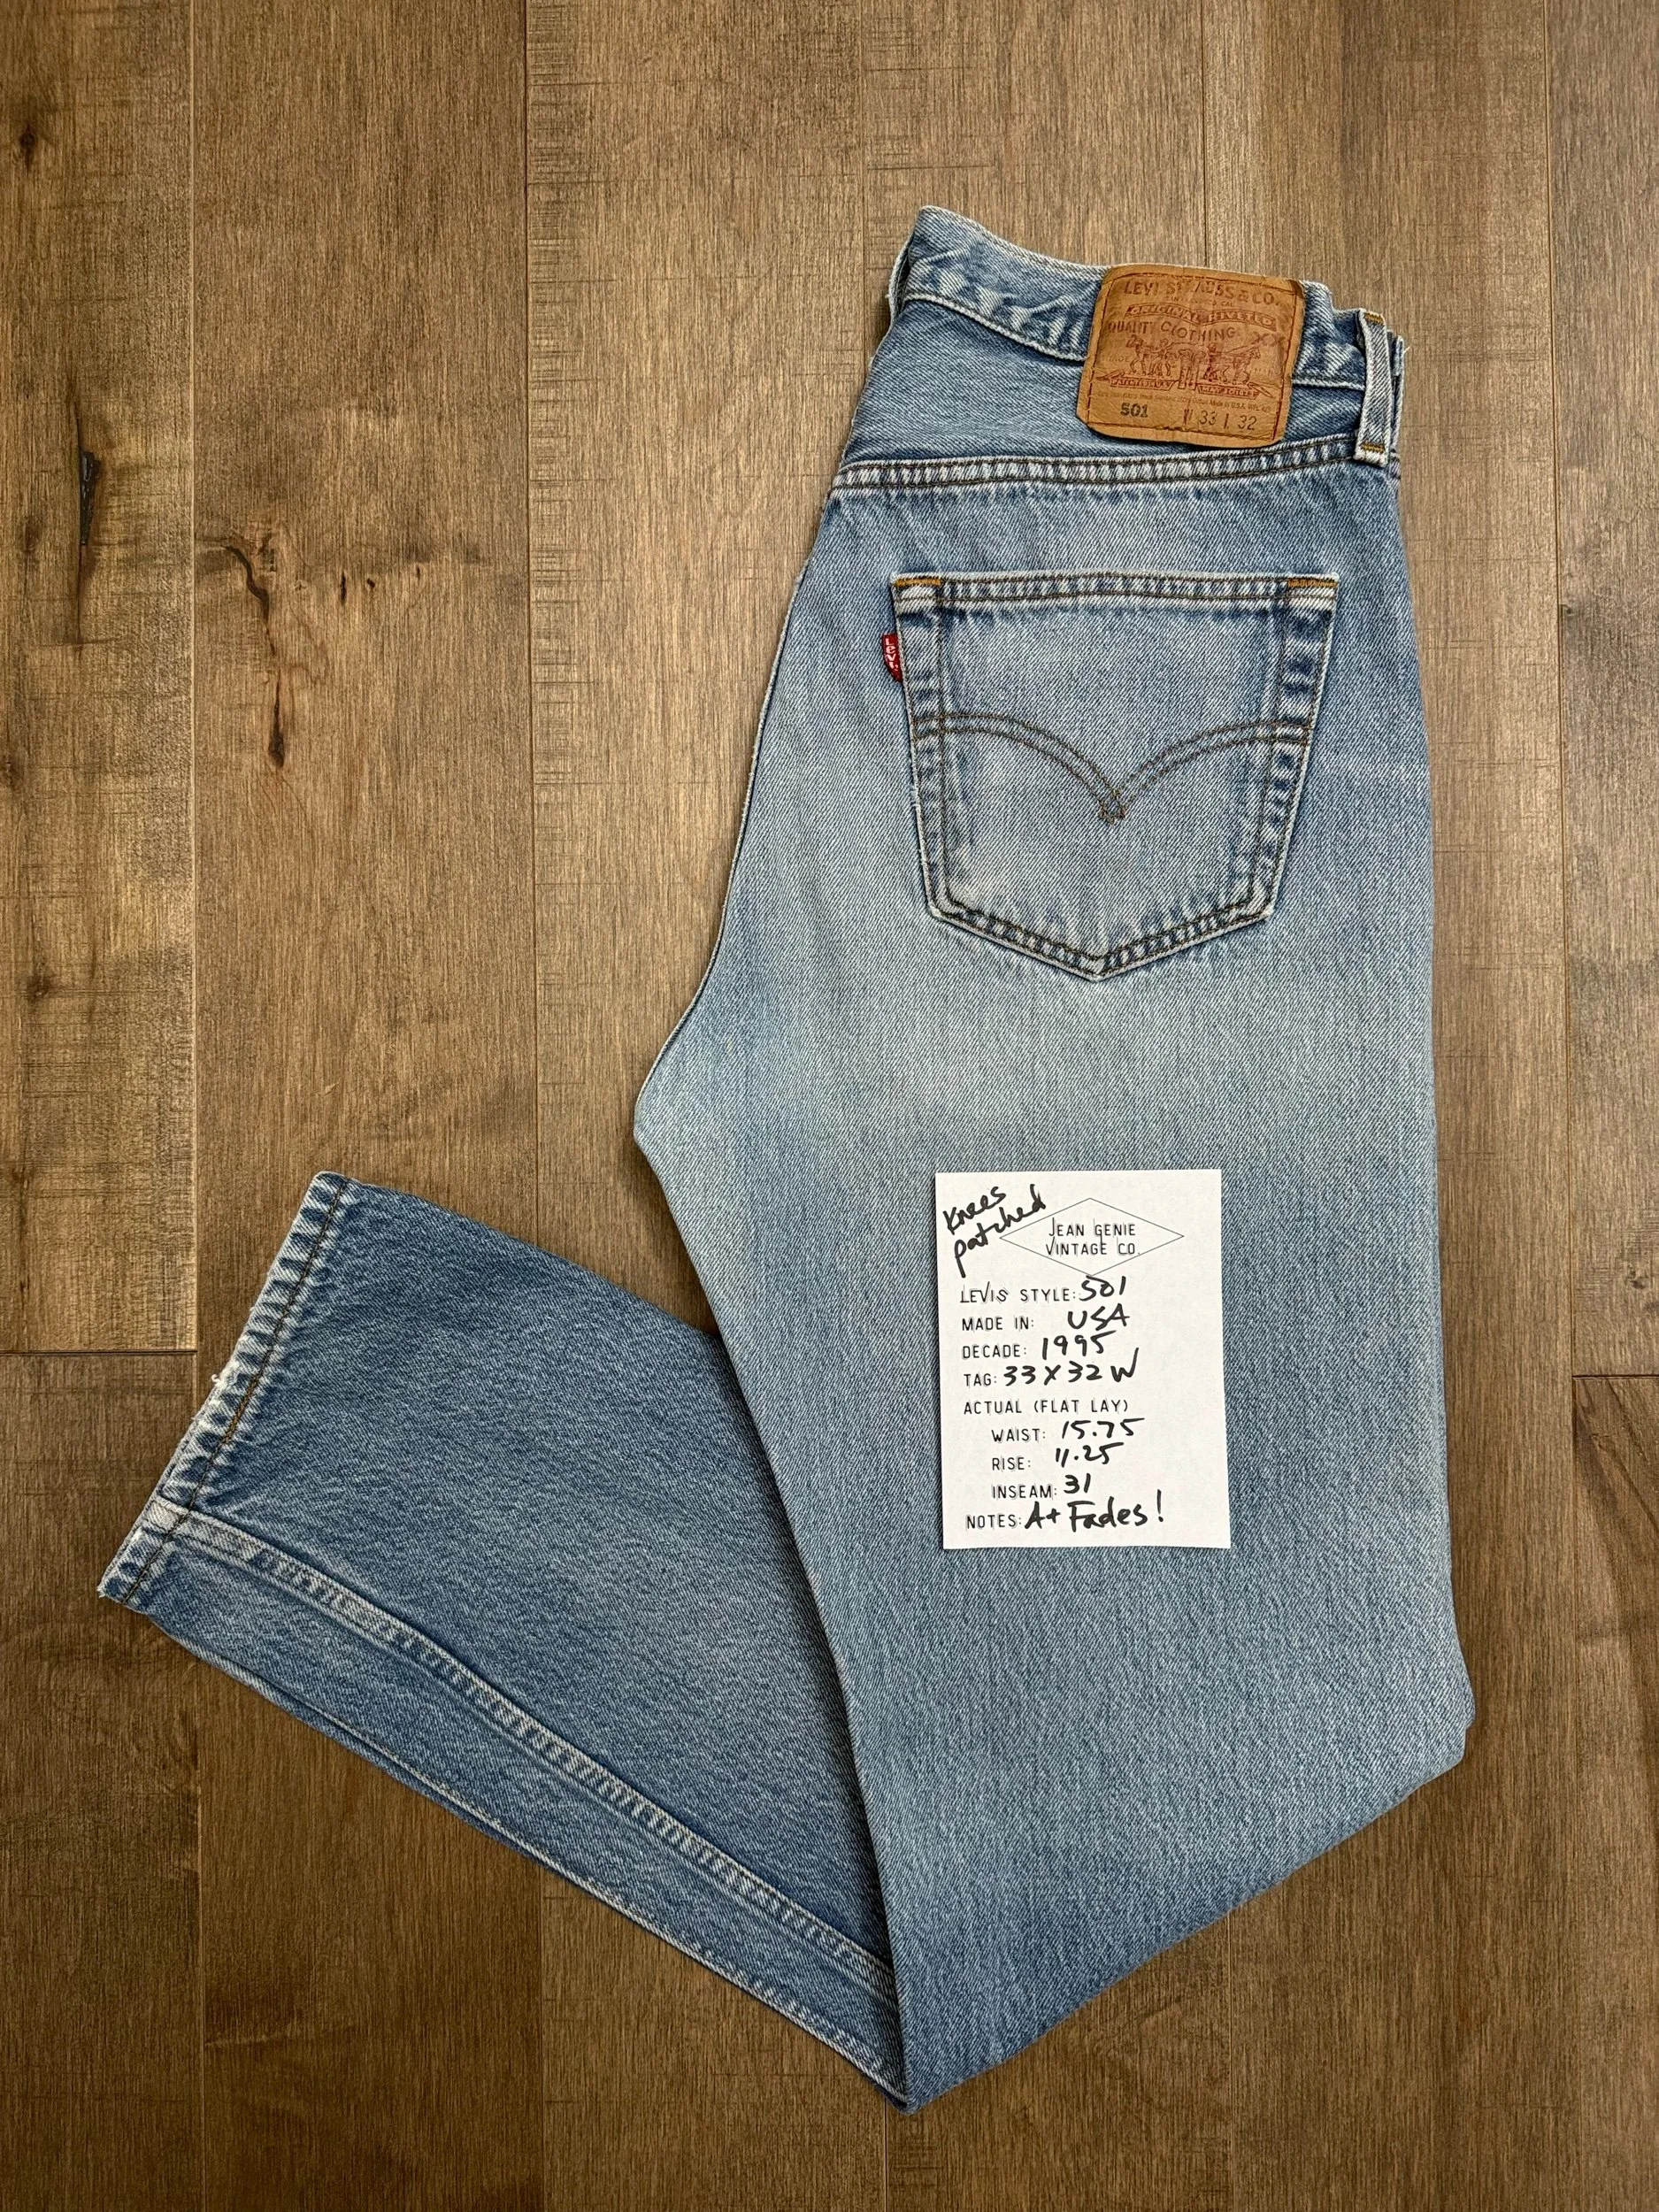 LEVI STRAUSS & CO.
ORIGINAL RIVETED
QUALITY CLOTHING XX
501 W 33 L 32
Levi's
Knees
patched
JEAN GENIE
VINTAGE CO.
LEVIS STYLE: 501
MADE IN: USA
DECADE: 1995
TAG: 33 X 32 W
ACTUAL (FLAT LAY)
WAIST: 15.75
RISE: 11.25
INSEAM: 31
NOTES: A+ Fades!